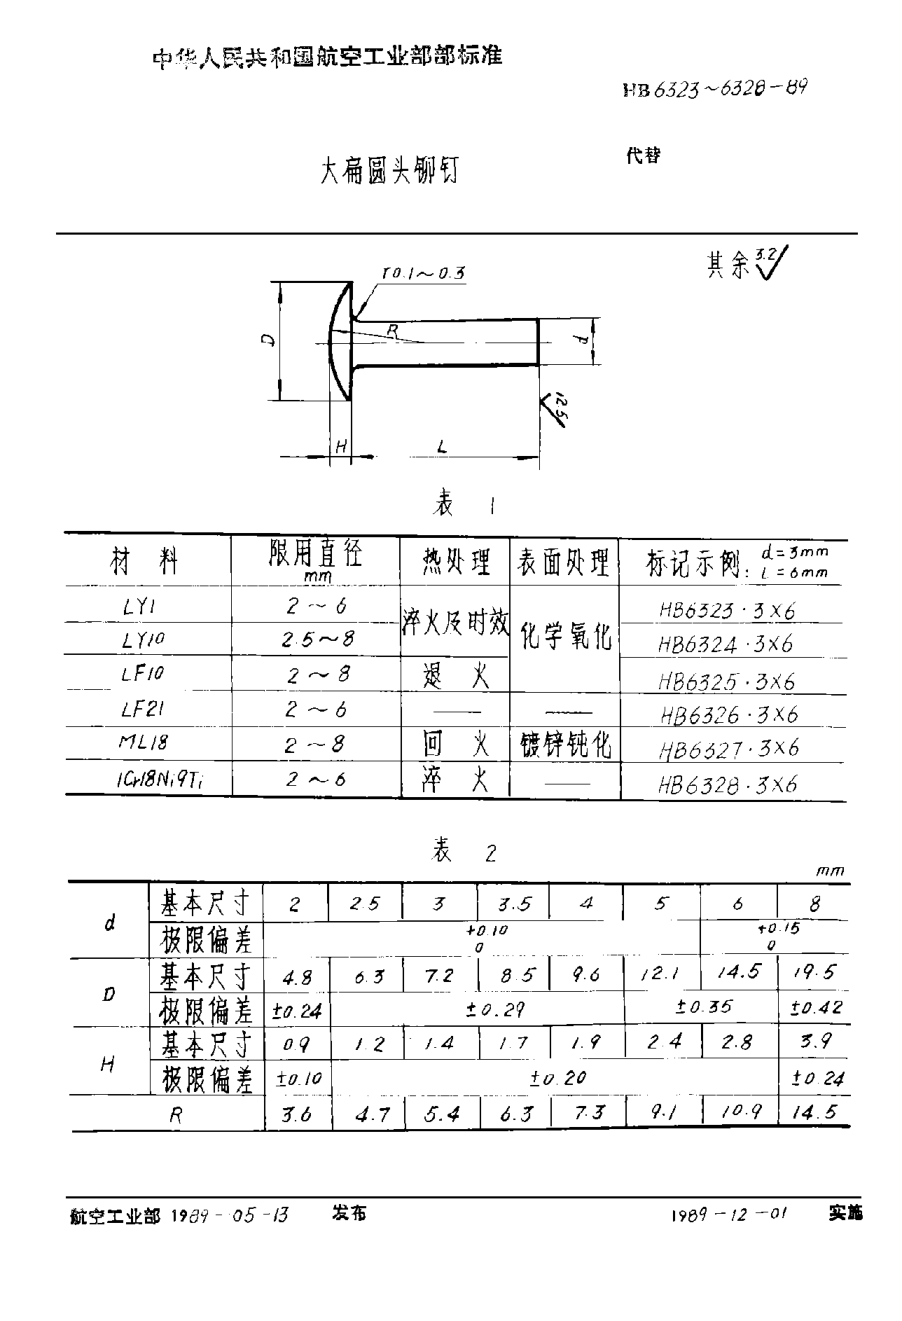 中华人民共和国航空工业部部标准
HB 6323～6328-89
大扁圆头铆钉
代替
其余 3.2
r0.1～0.3
D
R
d
12.5
H
L
表 1
材 料 限用直径 mm 热处理 表面处理 标记示例: d=3mm L=6mm
LY1 2～6 淬火及时效 化学氧化 HB6323·3×6
LY10 2.5～8 HB6324·3×6
LF10 2～8 退 火 HB6325·3×6
LF21 2～6 —— —— HB6326·3×6
ML18 2～8 回 火 镀锌钝化 HB6327·3×6
1Cr18Ni9Ti 2～6 淬 火 —— HB6328·3×6
表 2
mm
d 基本尺寸 2 2.5 3 3.5 4 5 6 8
极限偏差 +0.10 0 +0.15 0
D 基本尺寸 4.8 6.3 7.2 8.5 9.6 12.1 14.5 19.5
极限偏差 ±0.24 ±0.29 ±0.35 ±0.42
H 基本尺寸 0.9 1.2 1.4 1.7 1.9 2.4 2.8 3.9
极限偏差 ±0.10 ±0.20 ±0.24
R 3.6 4.7 5.4 6.3 7.3 9.1 10.9 14.5
航空工业部 1989-05-13 发布 1989-12-01 实施